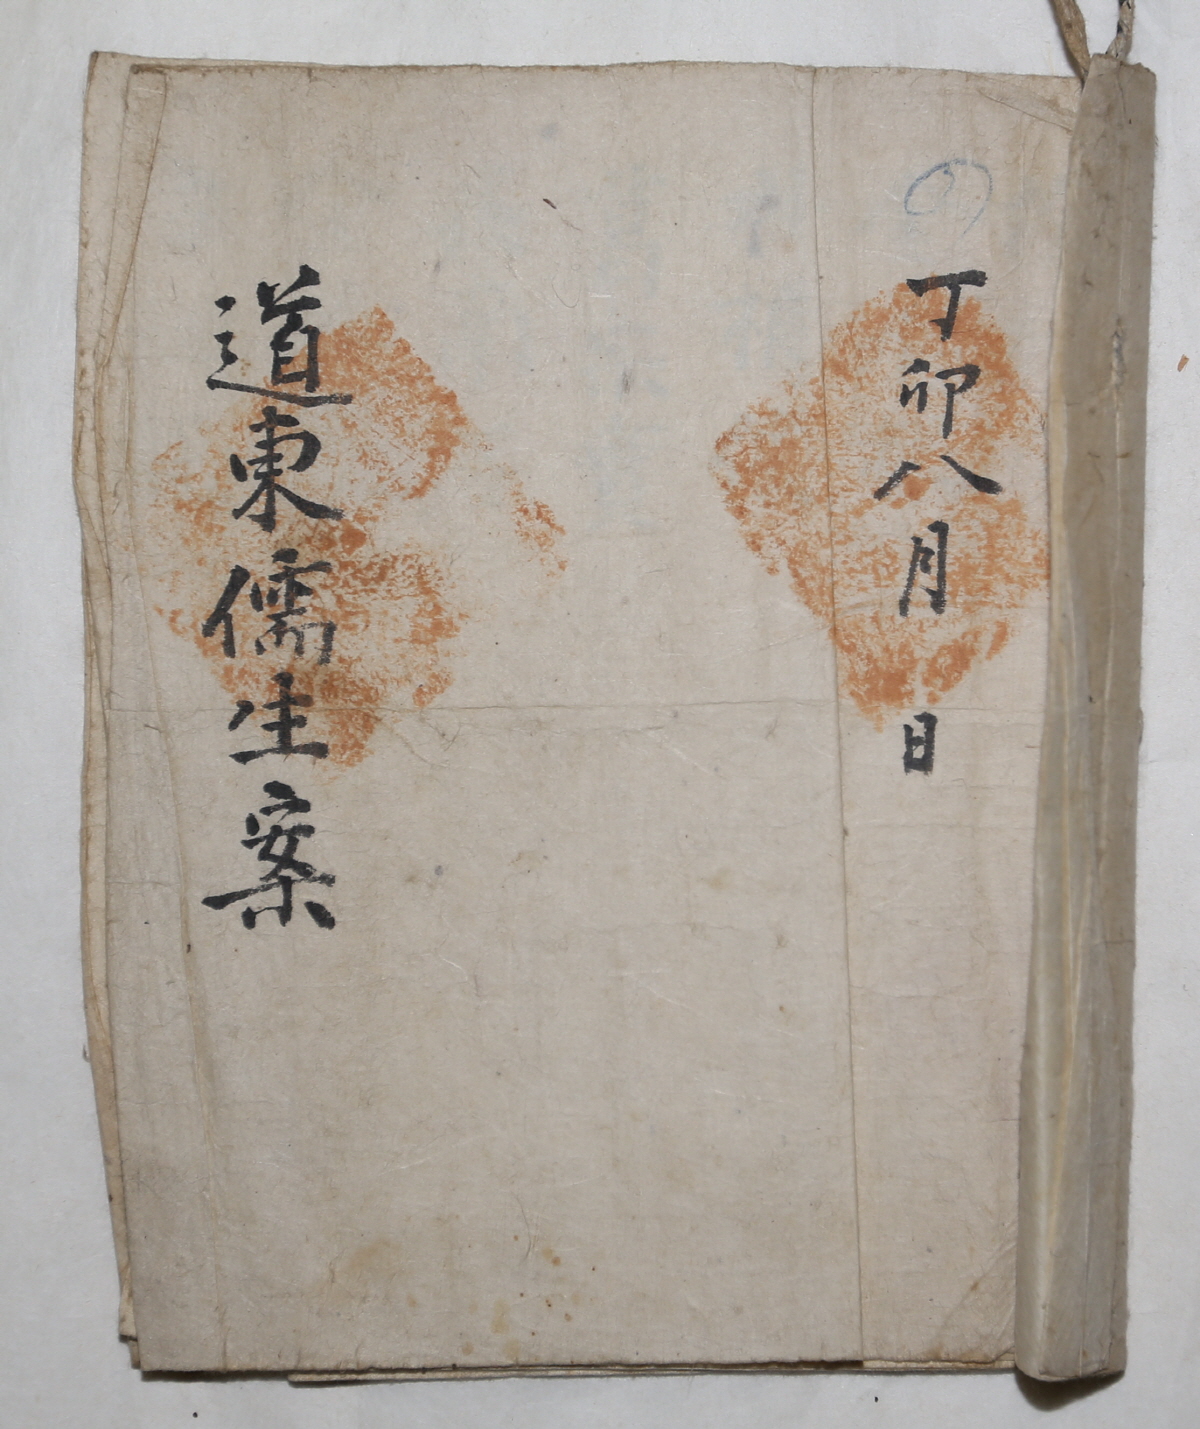 丁卯八月 日
道東儒生案